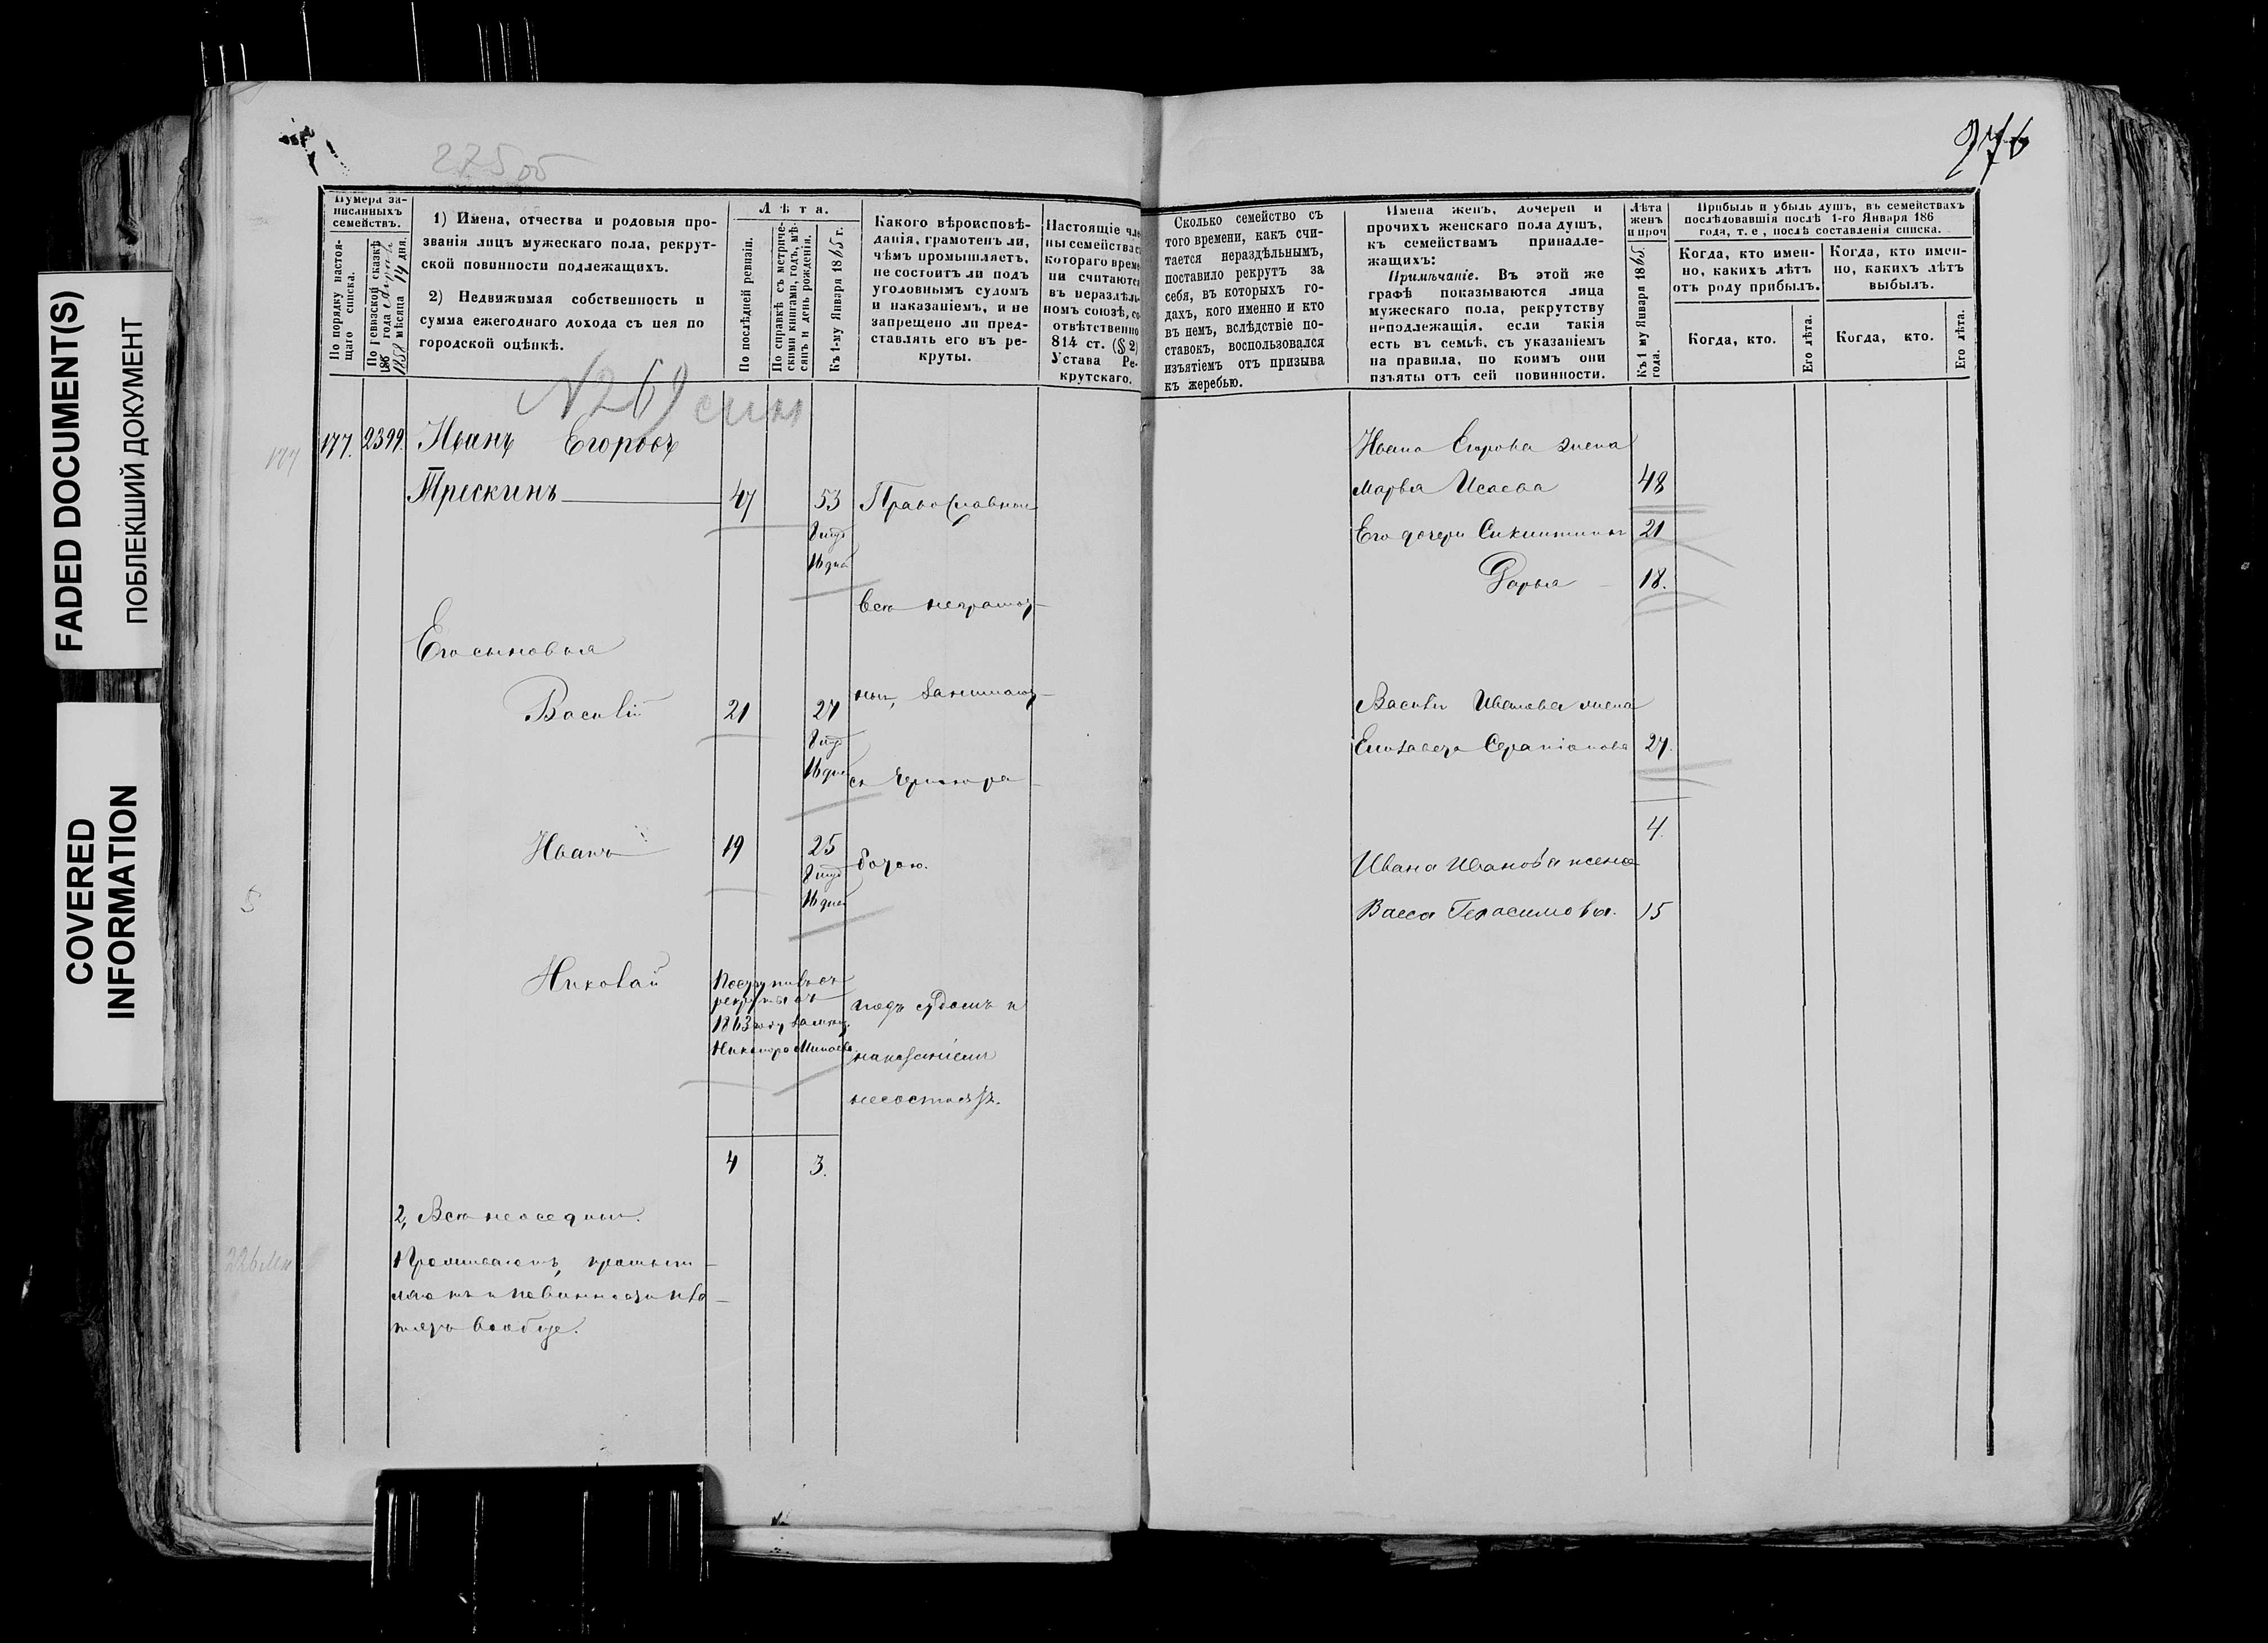 FADED DOCUMENT(S)
ПОБЛЕКШИЙ ДОКУМЕНТ
COVERED
INFORMATION
275 об
Нумера за-
писанныхъ
семействъ.
По порядку настоя-
щаго списка.
По ревизской сказкѣ
186 года
1858 мѣсяца 14 дня.
1) Имена, отчества и родовыя про-
званія лицъ мужескаго пола, рекрут-
ской повинности подлежащихъ.
2) Недвижимая собственность и
сумма ежегоднаго дохода съ нея по
городской оцѣнкѣ.
Лѣта.
По послѣдней ревизіи.
По справкѣ съ метриче-
скими книгами, годъ, мѣ-
сяцъ и день рожденія.
Къ 1-му Января 1865 г.
Какого вѣроисповѣ-
данія, грамотенъ ли,
чѣмъ промышляетъ,
не состоитъ ли подъ
уголовнымъ судомъ
и наказаніемъ, и не
запрещено ли пред-
ставлять его въ ре-
круты.
Настоящіе чле
ны семейства съ
котораго време
ни считаются
въ нераздѣль
номъ союзѣ, со
отвѣтственно
814 ст. (§ 2)
Устава Ре-
крутскаго.
№ 269
177
177. 2399. Иванъ Егоровъ
Трескинъ 47 53 Православные
8 мѣс
16 дней
всѣ неграмот-
Его сыновья
ные, занимают-
Василій 21 27
8 мѣс
16 дней
ся чернора-
Иванъ 19 25
8 мѣс
16 дней
ботою.
5
Николай
Поступилъ въ
рекруты въ
1863 году
подъ судомъ и
наказаніемъ
несостоятъ.
4 3.
2, Всѣ неоседлые.
Проживаютъ, промыш-
ляютъ и повинности пла-
тятъ вообще.
276
Сколько семейство съ
того времени, какъ счи-
тается нераздѣльнымъ,
поставило рекрутъ за
себя, въ которыхъ го-
дахъ, кого именно и кто
въ немъ, вслѣдствіе по-
ставокъ, воспользовался
изъятіемъ отъ призыва
къ жеребью.
Имена женъ, дочерей и
прочихъ женскаго пола душъ,
къ семействамъ принадле-
жащихъ:
Примѣчаніе. Въ этой же
графѣ показываются лица
мужескаго пола, рекрутству
неподлежащія, если такія
есть въ семьѣ, съ указаніемъ
на правила, по коимъ они
изъяты отъ сей повинности.
Лѣта
женъ
и проч
Къ 1 му Января 1865.
года.
Прибыль и убыль душъ, въ семействахъ
послѣдовавшія послѣ 1-го Января 186
года, т. е., послѣ составленія списка.
Когда, кто имен-
но, какихъ лѣтъ
отъ роду прибылъ.
Когда, кто имен-
но, какихъ лѣтъ
выбылъ.
Когда, кто.
Его лѣта.
Когда, кто.
Его лѣта.
Ивана Егорова жена
Марья Исаева 48
Его дочери 21
Дарья 18.
Василія Иванова жена
Елизавета Серапіонова 27.
4.
Ивана Иванова жена
Васса Герасимова. 15